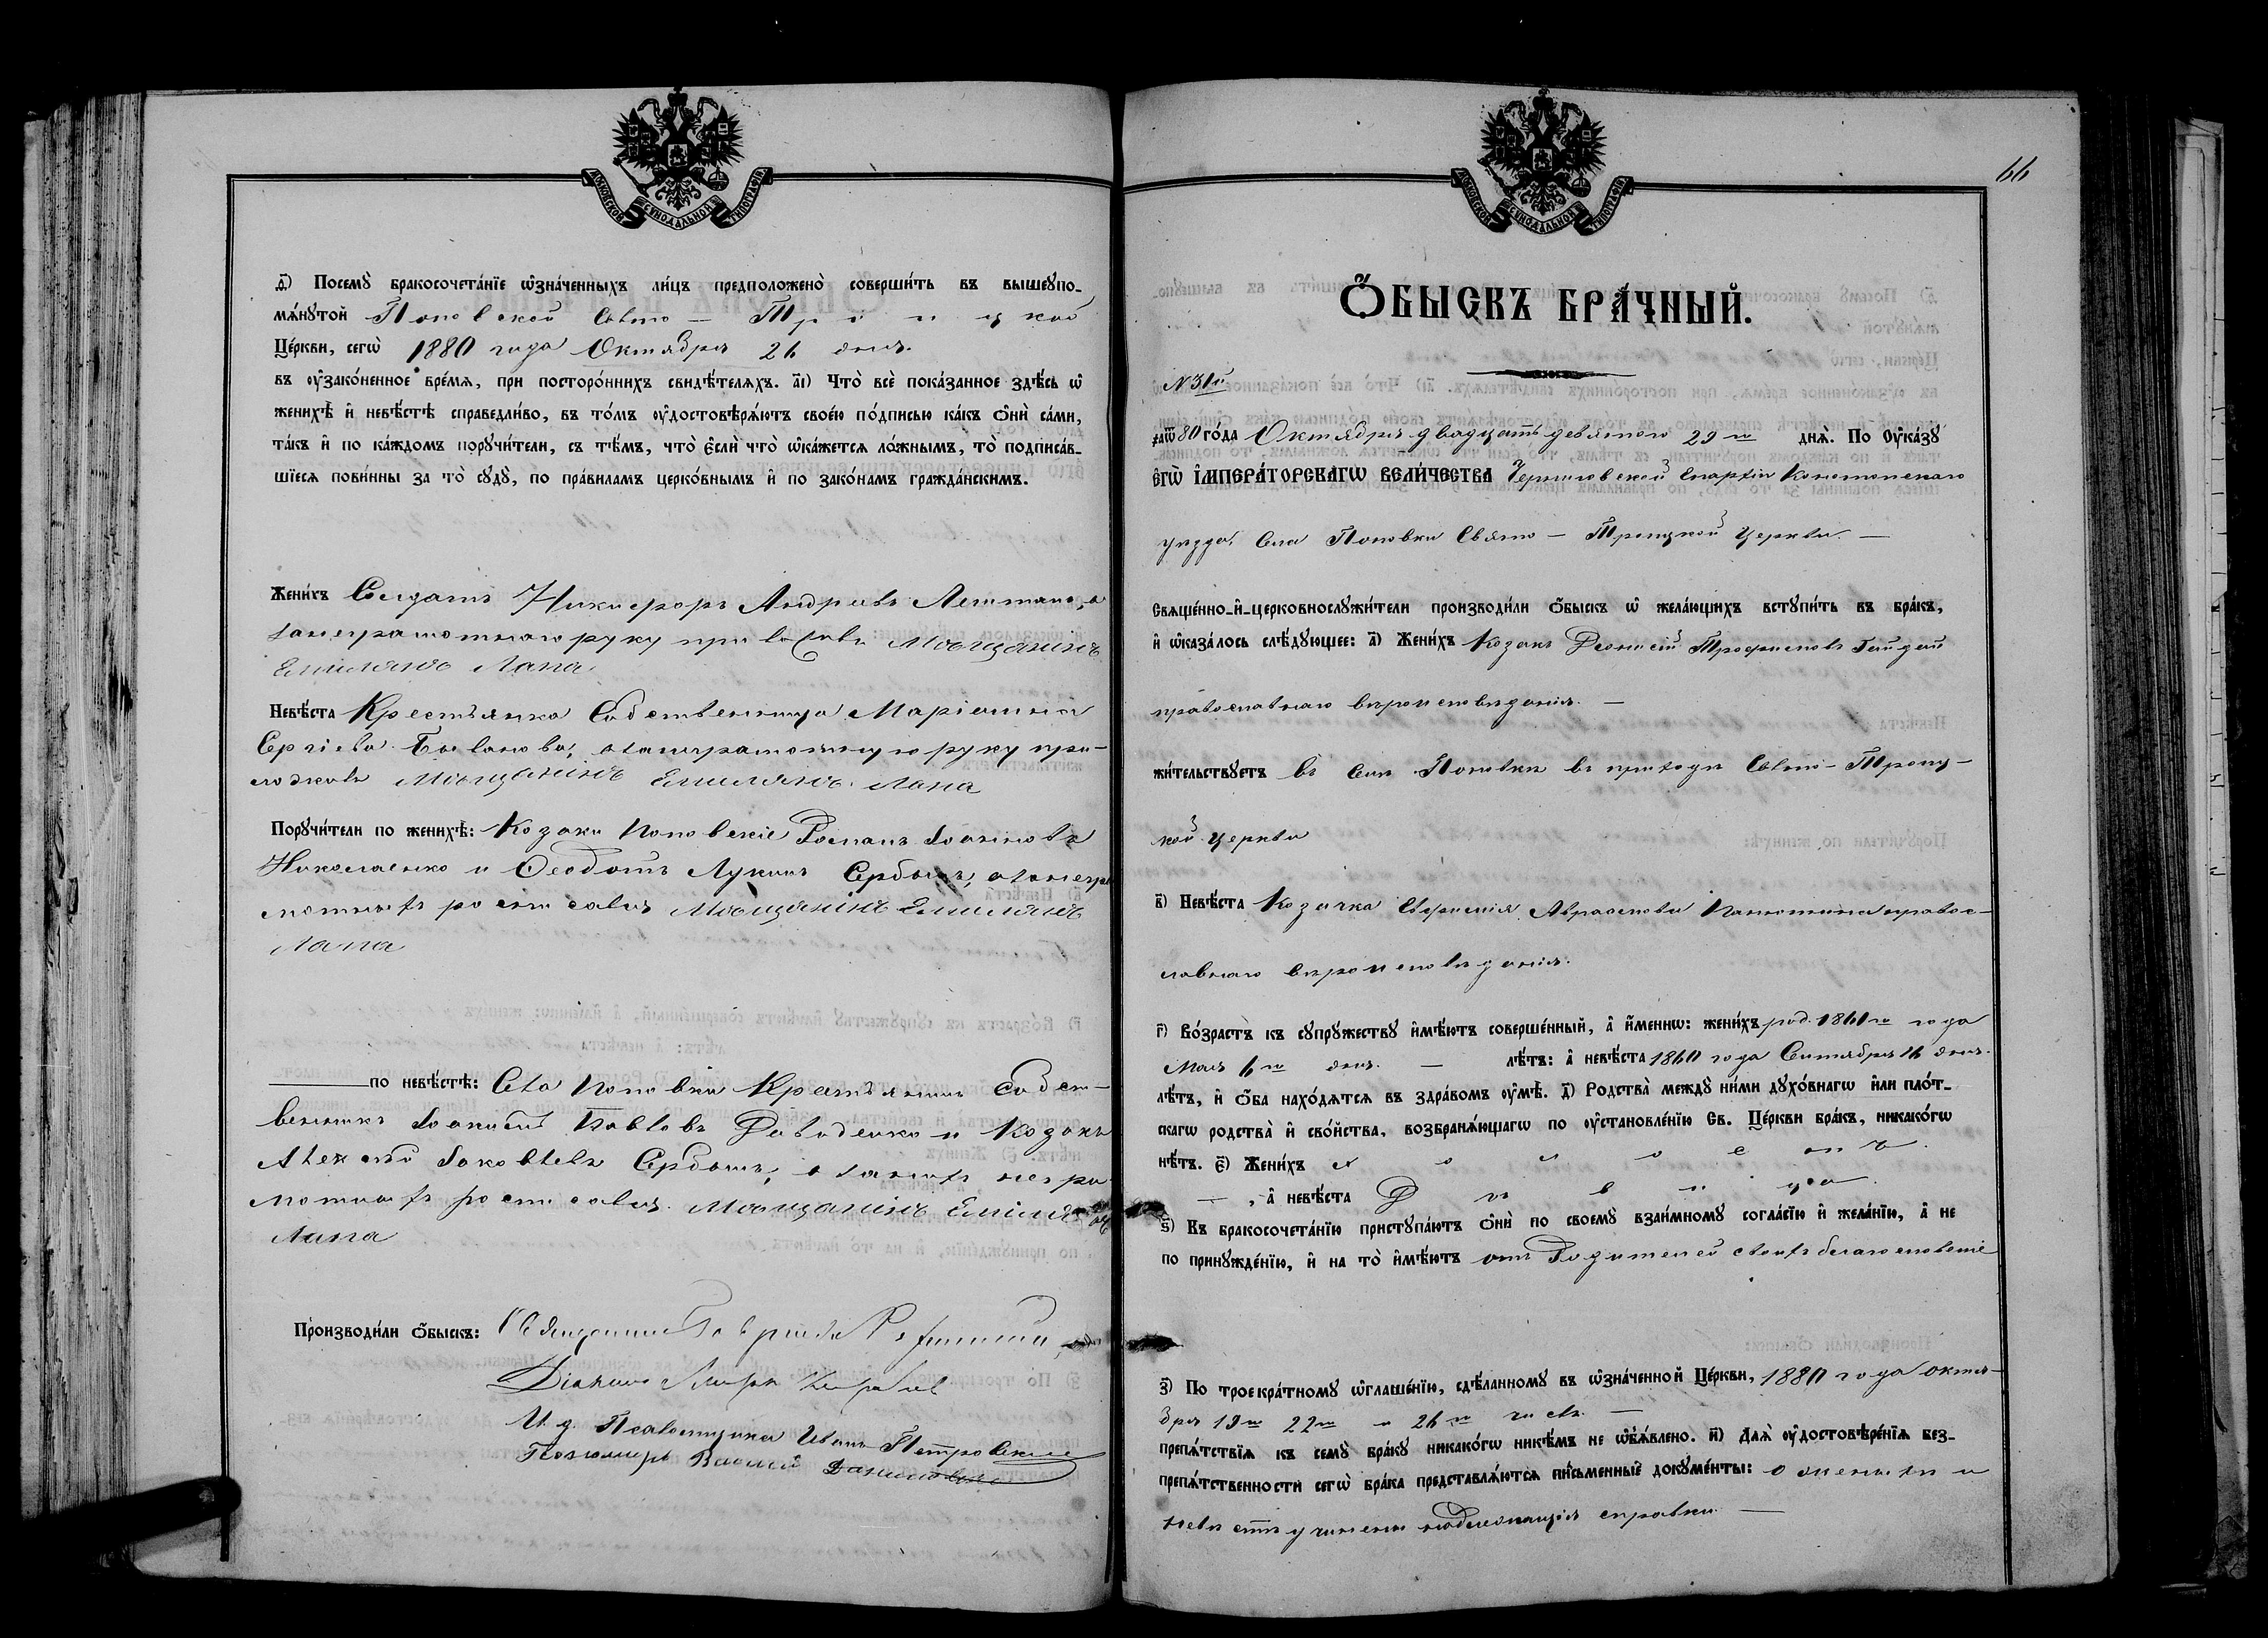 МОСКОВСКОЙ СУНОДАЛЬНОЙ ТИПОГРАФІИ
і҃) Посемꙋ̀ бракосочета́нїе ѡ҆зна́ченныхъ ли́цъ предположено̀ соверши́ть въ вышеꙋпо-
мѧ́нꙋтой Поповской Свято — Троицкой
Це́ркви, сегѡ̀ 1880 года Октября 26 дня.
въ ᲂу҆зако́ненное вре́мѧ, при посторо́ннихъ свидѣ́телѧхъ. а҃і) Что̀ всѐ пока́занное здѣ́сь ѡ҆
женихѣ̀ и҆ невѣ́стѣ справедли́во, въ то́мъ ᲂу҆достовѣрѧ́ютъ свое́ю по́дписью ка́къ ѻ҆нѝ са́ми,
та́къ и҆ по ка́ждомъ порꙋчи́тели, съ тѣ́мъ, что̀ є҆слѝ что̀ ѡ҆ка́жется ло́жнымъ, то̀ подписа́в-
шїеся пови́нны за то̀ сꙋдꙋ̀, по пра́виламъ церко́внымъ и҆ по зако́намъ гражда́нскимъ.
Жени́хъ Солдатъ Никифоръ Андреевъ а
за неграмотнаго руку приложилъ Мѣщанинъ
Емиліянъ Лапа.
Невѣ́ста Крестьянка Собственница Маріанна
Сергіева а за неграмотную руку при-
ложилъ Мѣщанинъ Емиліянъ Лапа
Порꙋчи́тели по женихѣ̀: Козаки Поповскіе Романъ Іоанновъ
Николаенко и Ѳеодотъ Лукинъ Сербинъ, а за негра
мотныхъ росписался Мѣщанинъ Емиліянъ
Лапа
по невѣ́стѣ: Села Поповки Крестьянинъ Собст-
венникъ Павловъ Давиденко и Козакъ
Алексѣй Яковлевъ Сербинъ, а за нихъ негра
мотныхъ росписался Мѣщанинъ Емиліянъ
Лапа
Производи́ли ѻ҆́быскъ: Священникъ
Діаконъ
И. д. Псаломщика Иванъ Петровскій
Пономарь Василій Даниловскій
66
МОСКОВСКОЙ СУНОДАЛЬНОЙ ТИПОГРАФІИ
Ѻ҆́БЫСКЪ БРА́ЧНЫЙ.
N 31й
҂аѿ 80 го́да Октября двадцать девятого 29го днѧ̀. По ᲂу҆ка́зꙋ
є҆гѡ̀ і҆мпера́торскагѡ вели́чества Черниговской Епархіи Конотопскаго
уѣзда, Села Поповки Свято — Троицкой Церкви. —
Свѧще́нно-и҆-церковнослꙋжи́тели производи́ли ѻ҆́быскъ ѡ҆ жела́ющихъ встꙋпи́ть въ бра́къ,
и҆ ѡ҆каза́лось слѣ́дꙋющее: а҃) Жени́хъ Козакъ Діонисій Трофимовъ Гайдай
православнаго вѣроисповѣданія. —
жи́тельствꙋетъ въ Селѣ Поповкѣ въ приходѣ Свято-Троиц-
кой церкви
в҃) Невѣ́ста Козачка Евфимія Авраамова правос-
лавнаго вѣроисповѣданія.
г҃) Во́зрастъ къ сꙋпрꙋ́жествꙋ и҆мѣ́ютъ соверше́нный, а҆ и҆́меннѡ: жени́хъ род. 1861го года
Мая 6го дня. — лѣ́тъ: а҆ невѣ́ста 1860 года Сентября 16 дня.
лѣ́тъ, и҆ ѻ҆́ба нахо́дѧтся въ здра́вомъ ᲂу҆мѣ̀. д҃) Родства̀ междꙋ̀ ни́ми дꙋхо́внагѡ и҆лѝ пло́т-
скагѡ родства̀ и҆ сво́йства, возбранѧ́ющагѡ по ᲂу҆становле́нїю Св. Це́ркви бра́къ, никако́гѡ
нѣ́тъ. є҃) Жени́хъ холостъ.
—, а҆ невѣ́ста Дѣвица.
ѕ҃) Къ бракосочета́нїю пристꙋпа́ютъ ѻ҆нѝ по своемꙋ̀ взаи́мномꙋ согла́сїю и҆ жела́нїю, а҆ не
по принꙋжде́нїю, и҆ на то̀ и҆мѣ́ютъ отъ Родителей своихъ благословеніе
з҃) По троекра́тномꙋ ѡ҆глаше́нїю, сдѣ́ланномꙋ въ ѡ҆зна́ченной Це́ркви, 1880 года октя-
бря 19го 22го и 26го числъ. —
препѧ́тствїѧ къ семꙋ̀ бра́кꙋ никако́гѡ никѣ́мъ не ѡ҆б̾ѧ́влено. и҃) Длѧ̀ ᲂу҆достовѣре́нїѧ без-
препѧ́тственности сегѡ̀ бра́ка представлѧ́ются пи́сьменныѣ докꙋме́нты: о женихѣ и
невѣстѣ учинены надлежащія справки. —